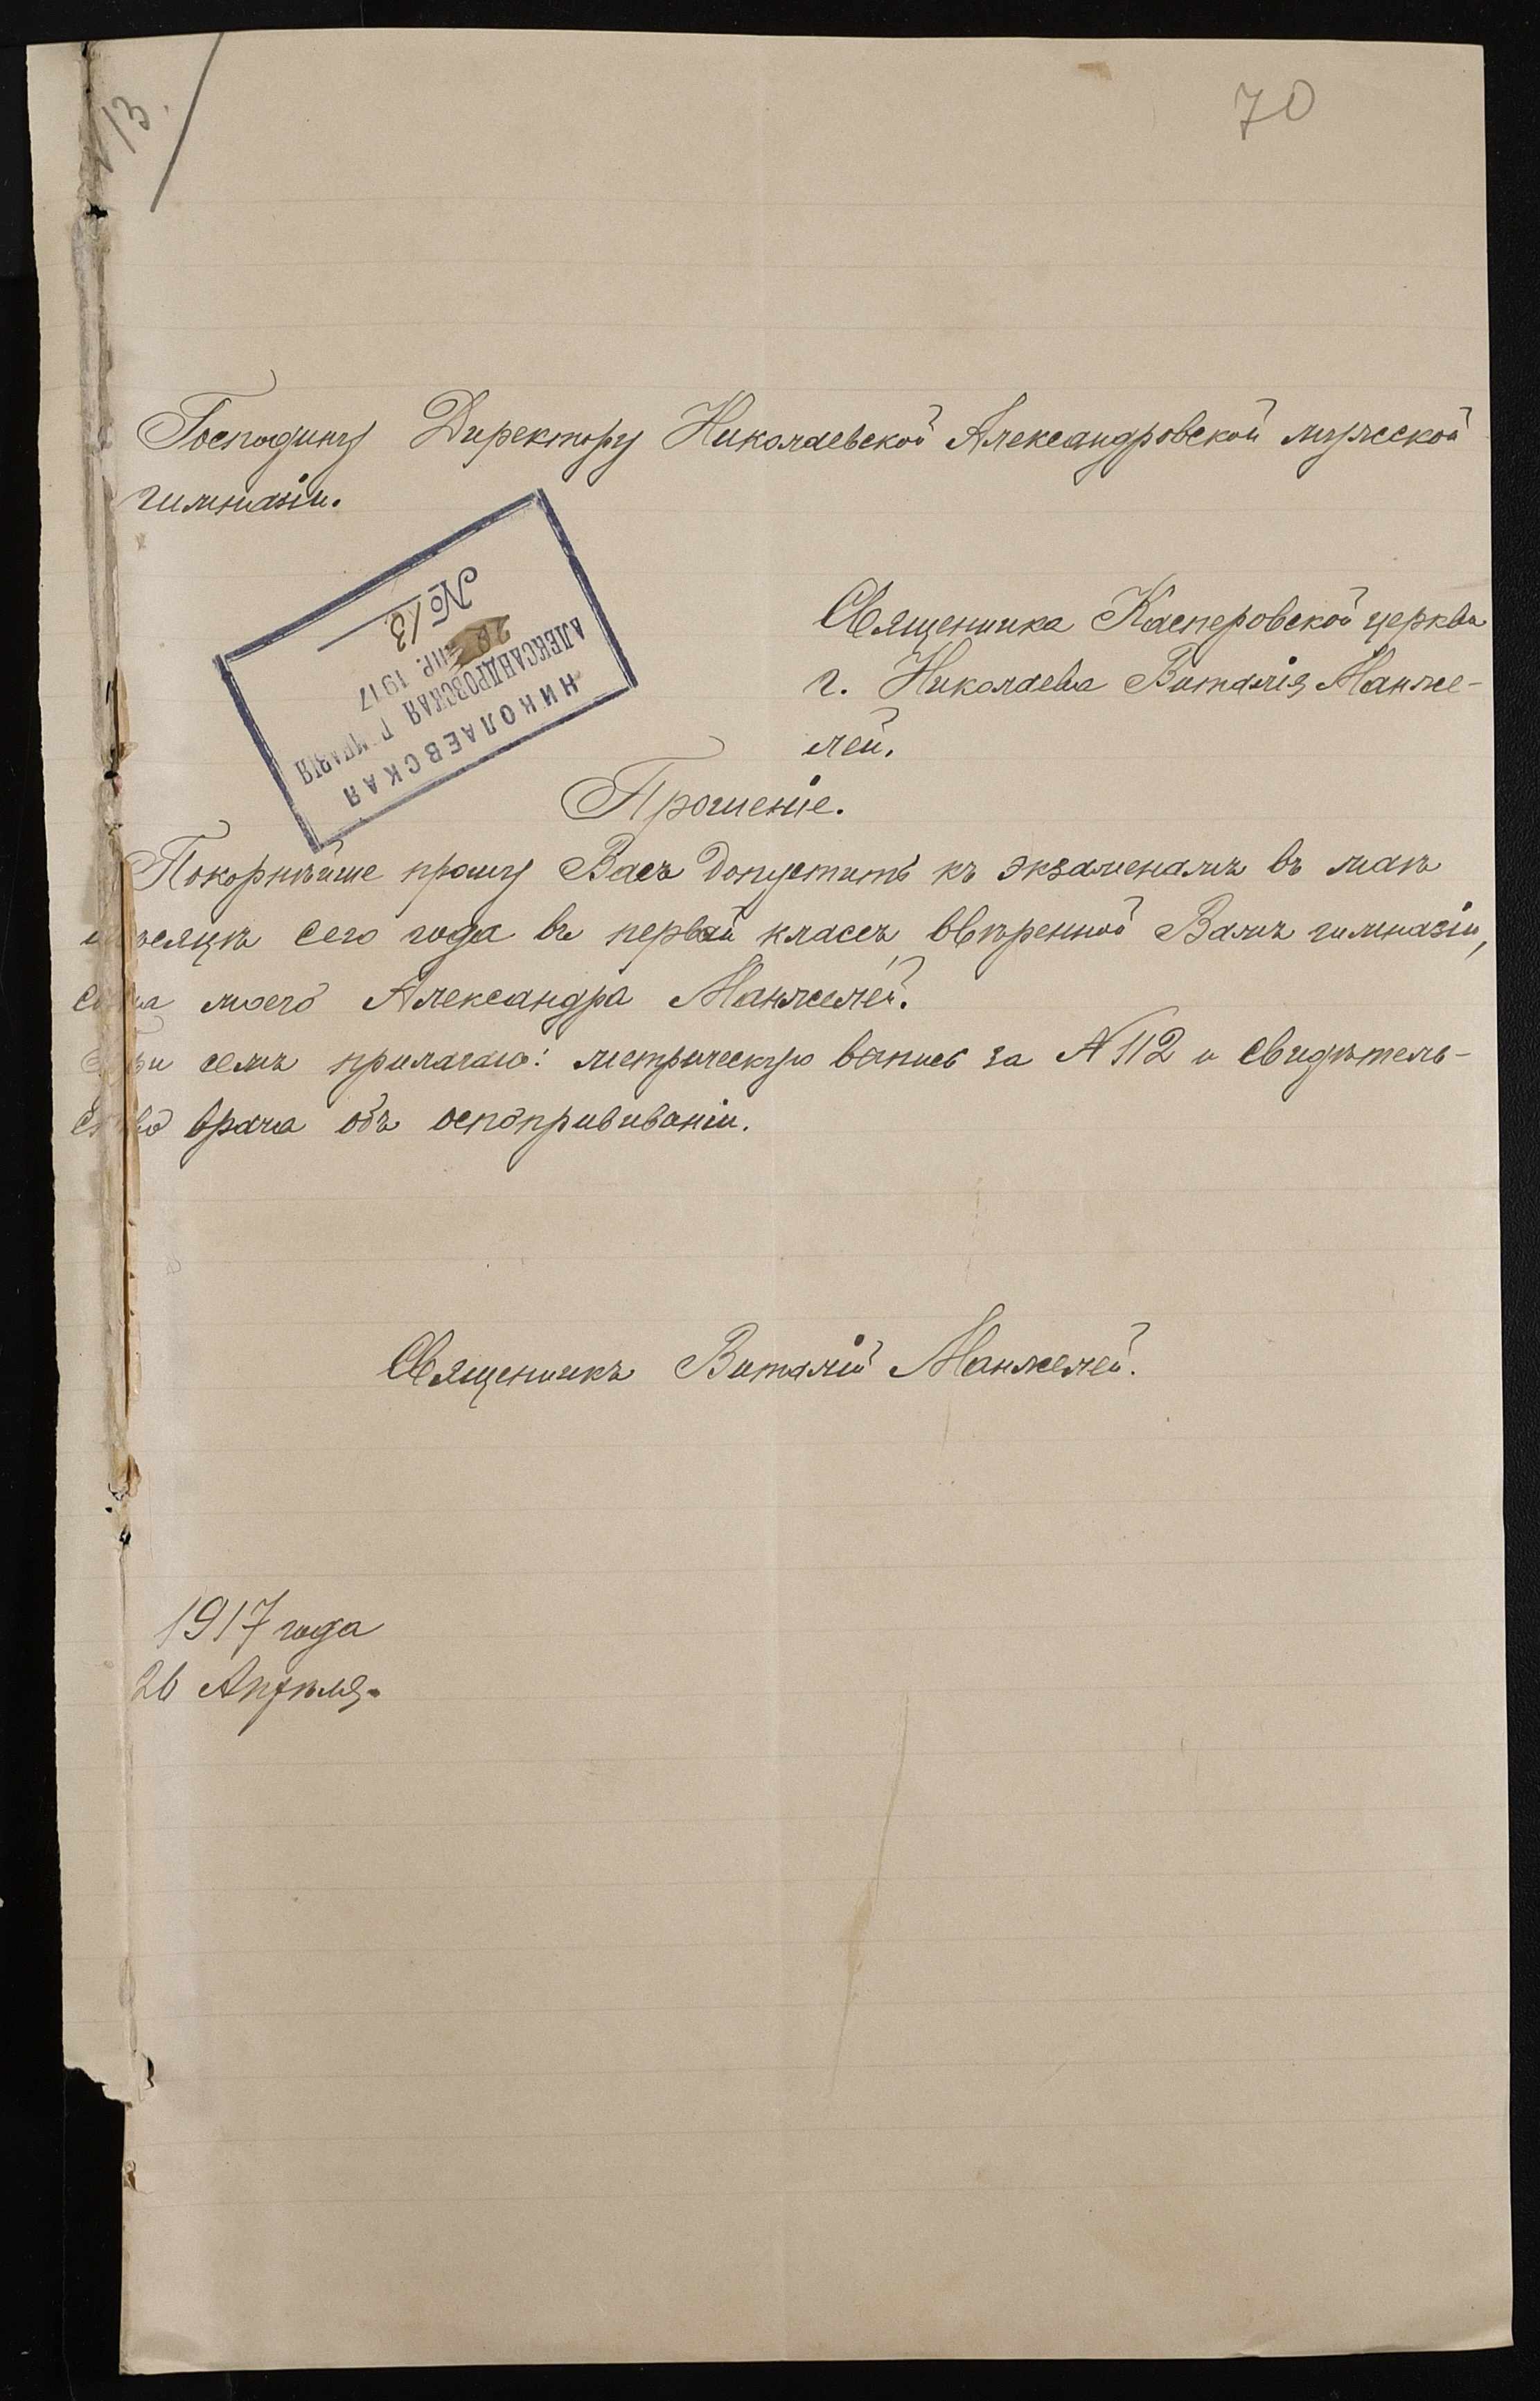 13.
70
Господину Директору Николаевской Александровской мужской
гимназіи.
НИКОЛАЕВСКАЯ
АЛЕКСАНДРОВСКАЯ Г МНАЗІЯ
26 АПР. 1917
№ 13
Священника Касперовской церкви
г. Николаева Виталія Манже-
лей.
Прошеніе.
Покорнѣйше прошу Васъ допустить къ экзаменамъ въ маѣ
мѣсяцѣ сего года въ первый классъ ввѣренной Вамъ гимназіи,
сына моего Александра Манжелей.
При семъ прилагаю: метрическую выпись за N 112 и свидѣтель-
ство врача объ оспопрививаніи.
Священникъ Виталій Манжелей.
1917 года
26 Апрѣля.